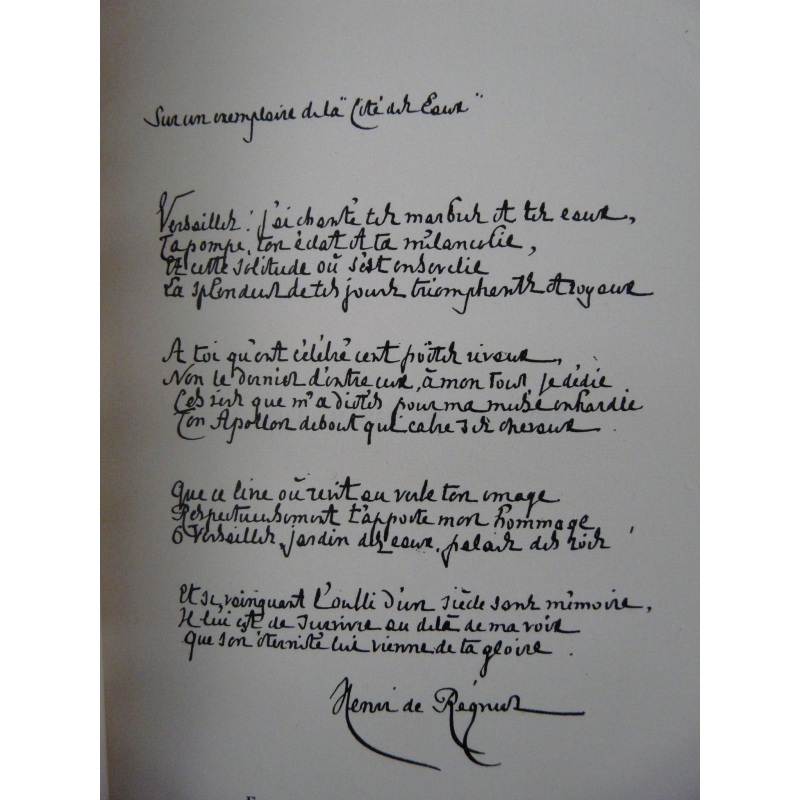 Sur un exemplaire de la "Cité des Eaux"
Versailles ! j'ai chanté tes marbres et tes eaux,
Ta pompe, ton éclat et ta mélancolie,
Et cette solitude où s'est ensevelie
La splendeur de tes jours triomphants et royaux
A toi qu'ont célébré cent poètes rivaux,
Non le dernier d'entre eux, à mon tour, je dédie
Ces vers que m'a dictés pour ma muse enhardie
Ton Apollon debout qui cabre ses chevaux.
Que ce livre où revit au verbe ton image
Respectueusement t'apporte mon hommage
O Versailles, jardin des eaux, palais des rois !
Et si, vainquant l'oubli d'un siècle sans mémoire,
Il lui est de survivre au delà de ma voix
Que son éternité lui vienne de ta gloire.
Henri de Régnier